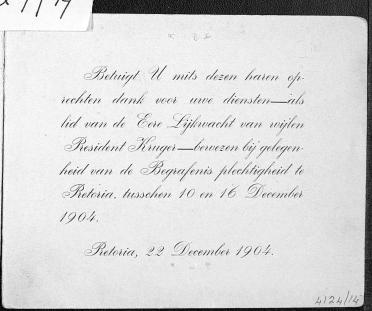 Betuigt U mits dezen haren op-
rechten dank voor uwe diensten—als
lid van de Eere Lijkwacht van wijlen
President Kruger—bewezen bij gelegen-
heid van de Begrafenis plechtigheid te
Pretoria, tusschen 10 en 16 December
1904.
Pretoria, 22 December 1904.
4124/14